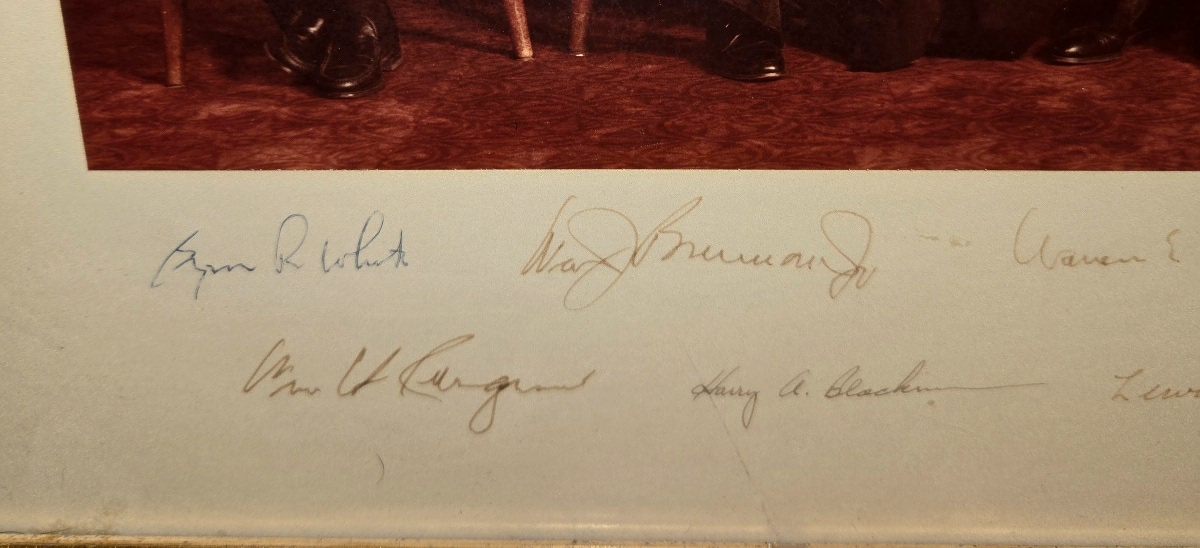 Byron R White Wm J Brennan Jr Warren E
Wm H Rehnquist Harry A. Blackmun Lewis